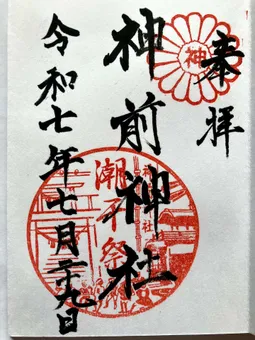 奉拝
神
神前神社
神前神社
潮干祭
令和七年七月二十九日